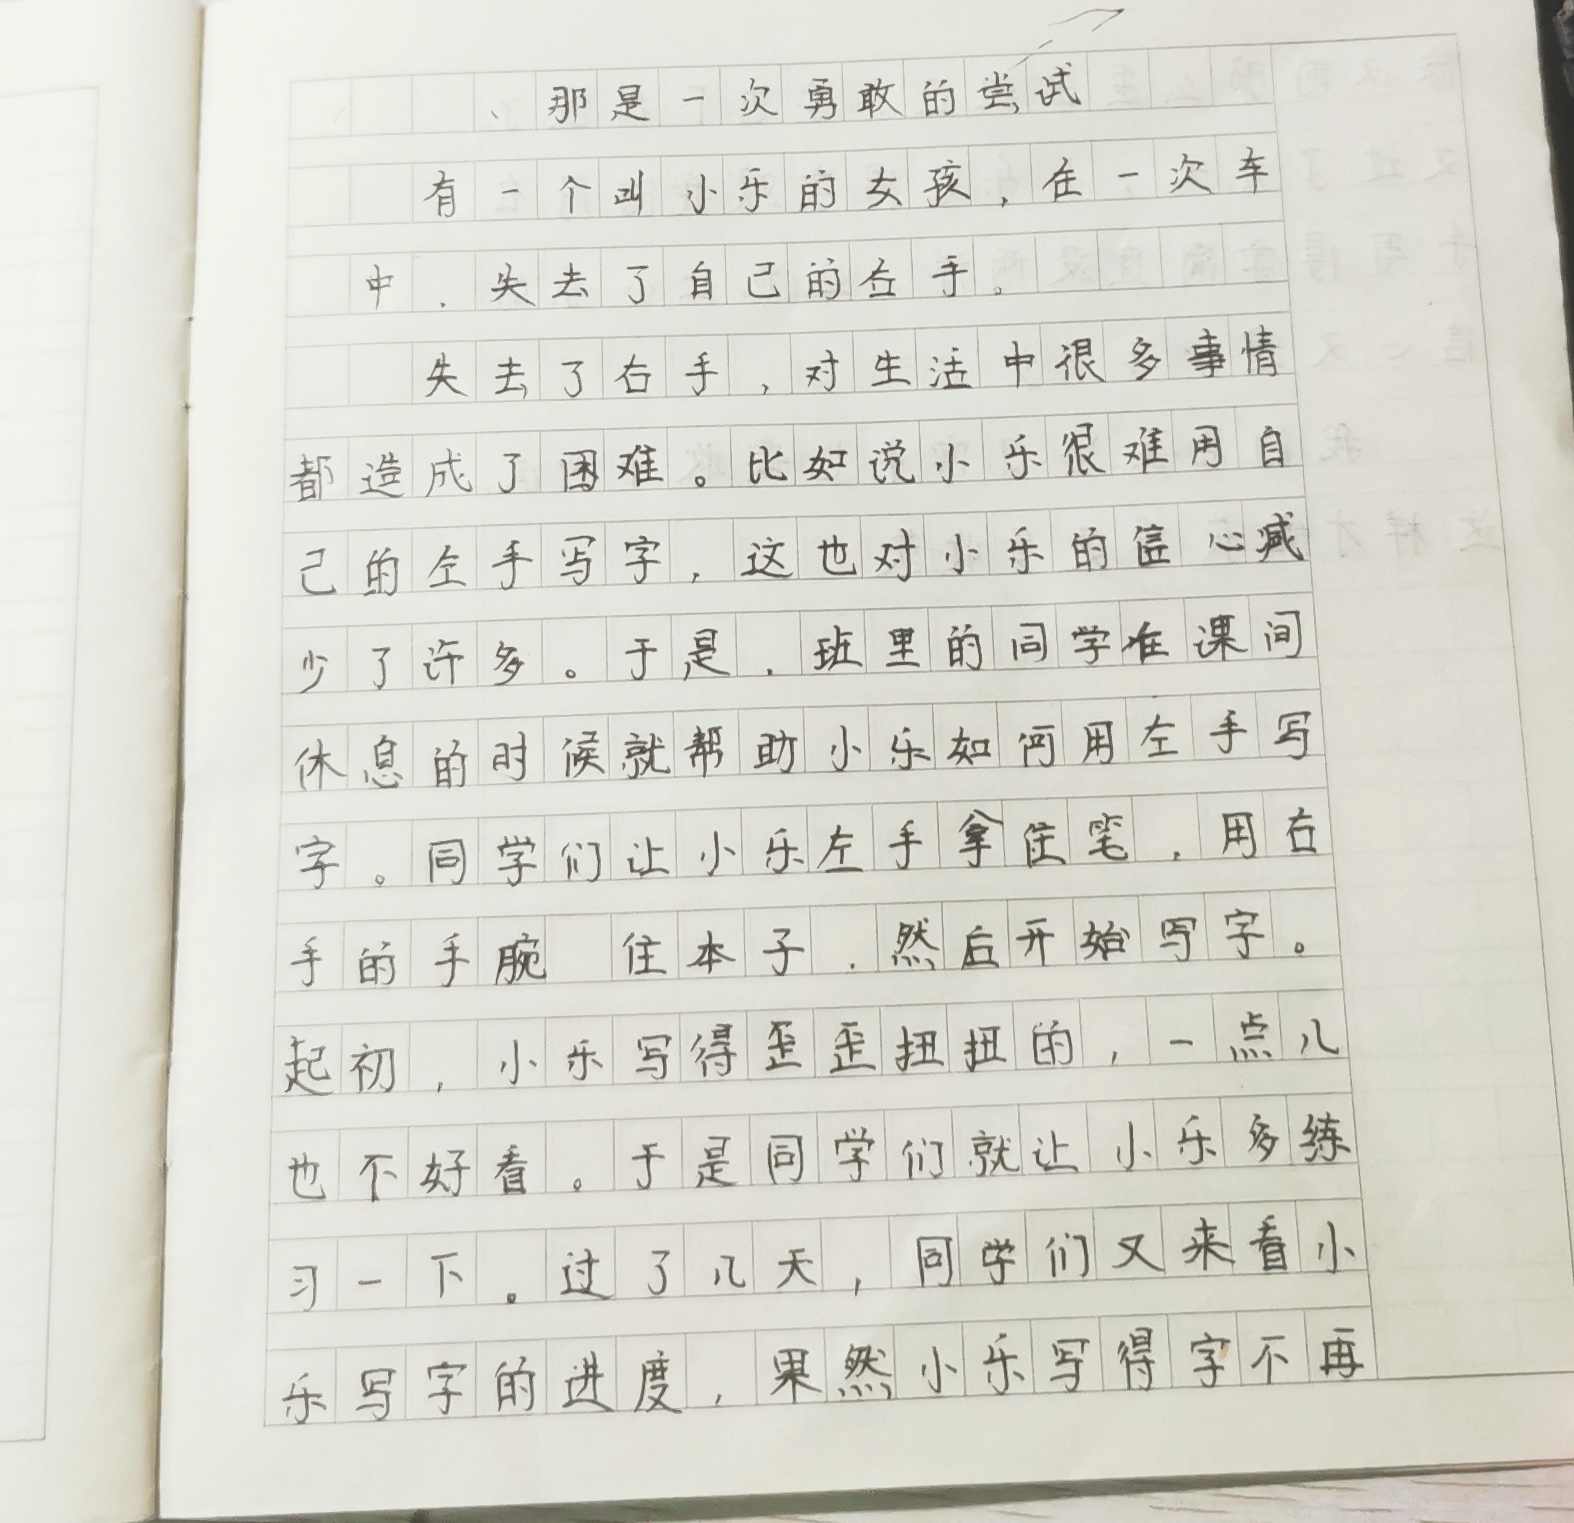 那是一次勇敢的尝试
有一个叫小乐的女孩，在一次车
中，失去了自己的右手。
失去了右手，对生活中很多事情
都造成了困难。比如说小乐很难用自
己的左手写字，这也对小乐的信心减
少了许多。于是，班里的同学在课间
休息的时候就帮助小乐如何用左手写
字。同学们让小乐左手拿住笔，用右
手的手腕 住本子，然后开始写字。
起初，小乐写得歪歪扭扭的，一点儿
也不好看。于是同学们就让小乐多练
习一下。过了几天，同学们又来看小
乐写字的进度，果然小乐写得字不再